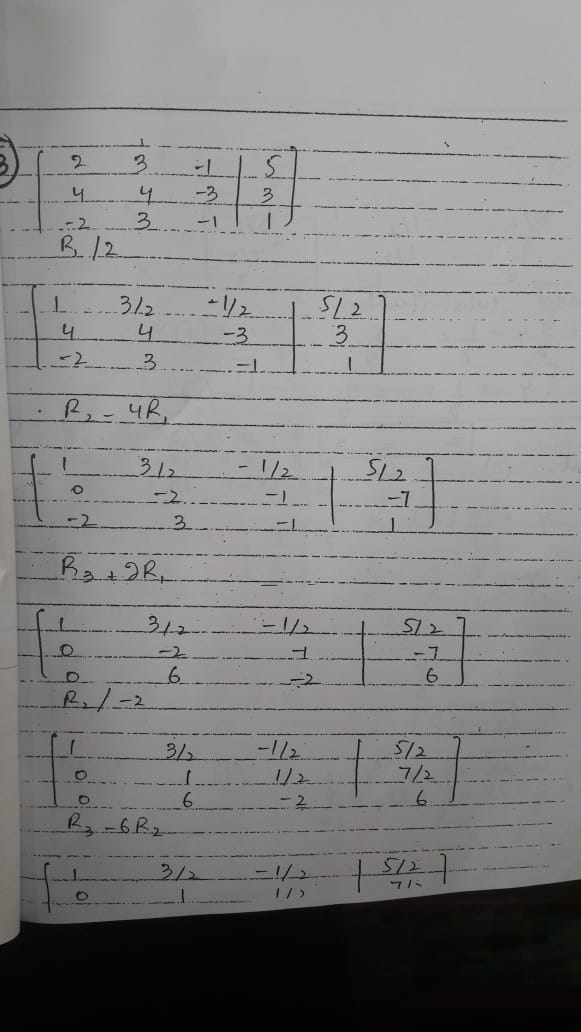 3)
2 3 -1 | 5
4 4 -3 | 3
-2 3 -1 | 1
R₁/2
1 3/2 -1/2 | 5/2
4 4 -3 | 3
-2 3 -1 | 1
R₂ - 4R₁
1 3/2 -1/2 | 5/2
0 -2 -1 | -7
-2 3 -1 | 1
R₃ + 2R₁
1 3/2 -1/2 | 5/2
0 -2 -1 | -7
0 6 -2 | 6
R₂/-2
1 3/2 -1/2 | 5/2
0 1 1/2 | 7/2
0 6 -2 | 6
R₃ - 6R₂
1 3/2 -1/2 | 5/2
0 1